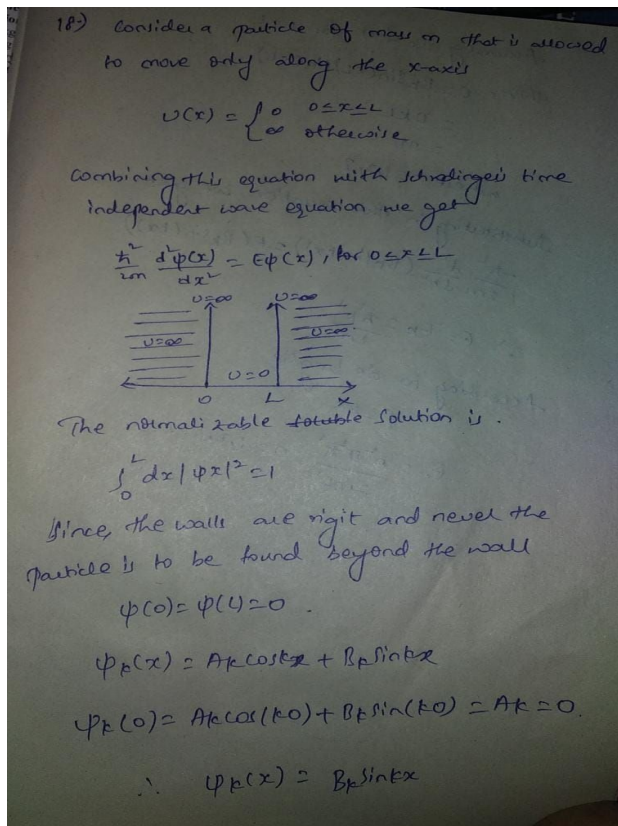 18:) Consider a particle of mass m that is allowed
to move only along the x-axis
U(x) = { 0 0≤x≤L
∞ otherwise
Combining this equation with schrodinger's time
independent wave equation we get
ℏ²/2m d²ψ(x)/dx² = Eψ(x), for 0≤x≤L
U=∞ U=∞
U=∞ U=∞
U=0
0 L x
The normalizable solution is .
∫₀ᴸ dx|ψx|²=1
Since, the walls are rigit and never the
particle is to be found beyond the wall
ψ(0)= ψ(L)=0 .
ψₖ(x) = Aₖcoskx + Bₖsinkx
ψₖ(0)= Aₖcos(k0)+Bₖsin(k0) = Aₖ=0.
∴ ψₖ(x) = Bₖsinkx